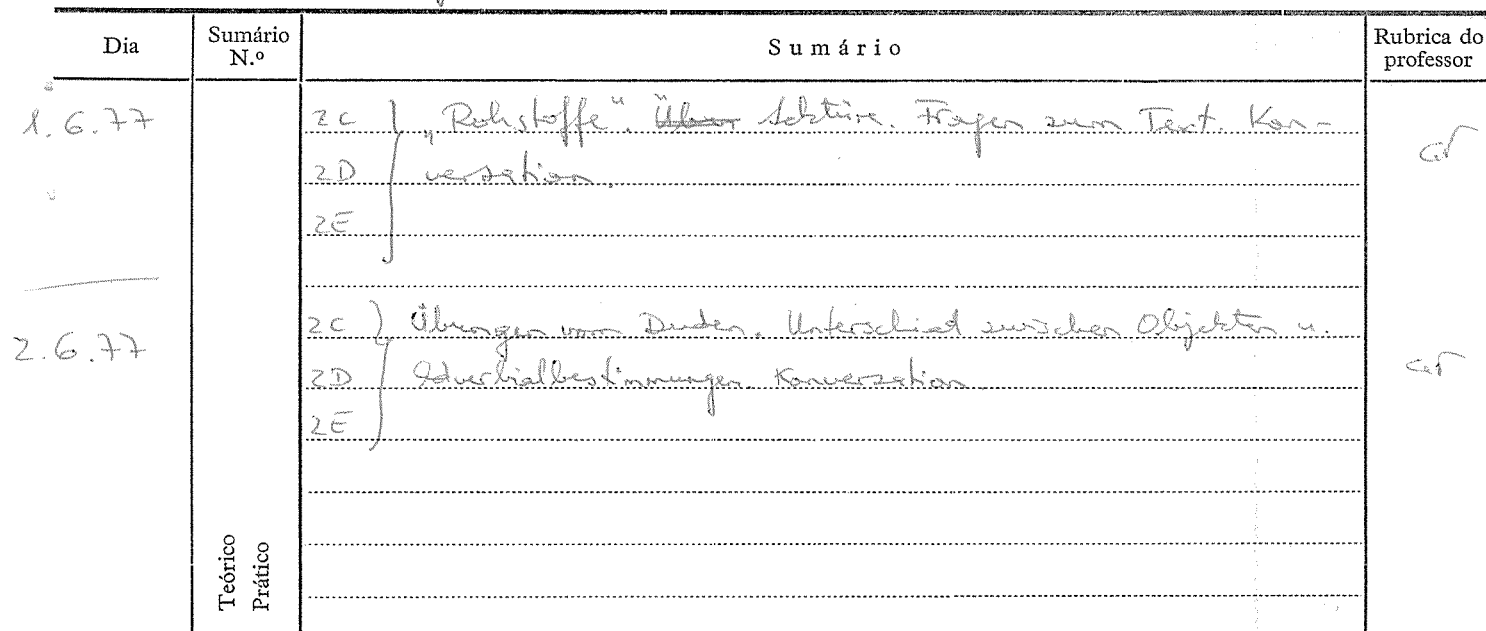 Dia Sumário N.º Sumário Rubrica do professor
1.6.77 2C „Rohstoffe“. Über Lektüre. Fragen zum Text. Kon-
2D versation.
2E
2.6.77 2C Übungen vom Duden. Unterschied zwischen Objekten u.
2D Adverbialbestimmungen. Konversation
2E
Teórico
Prático